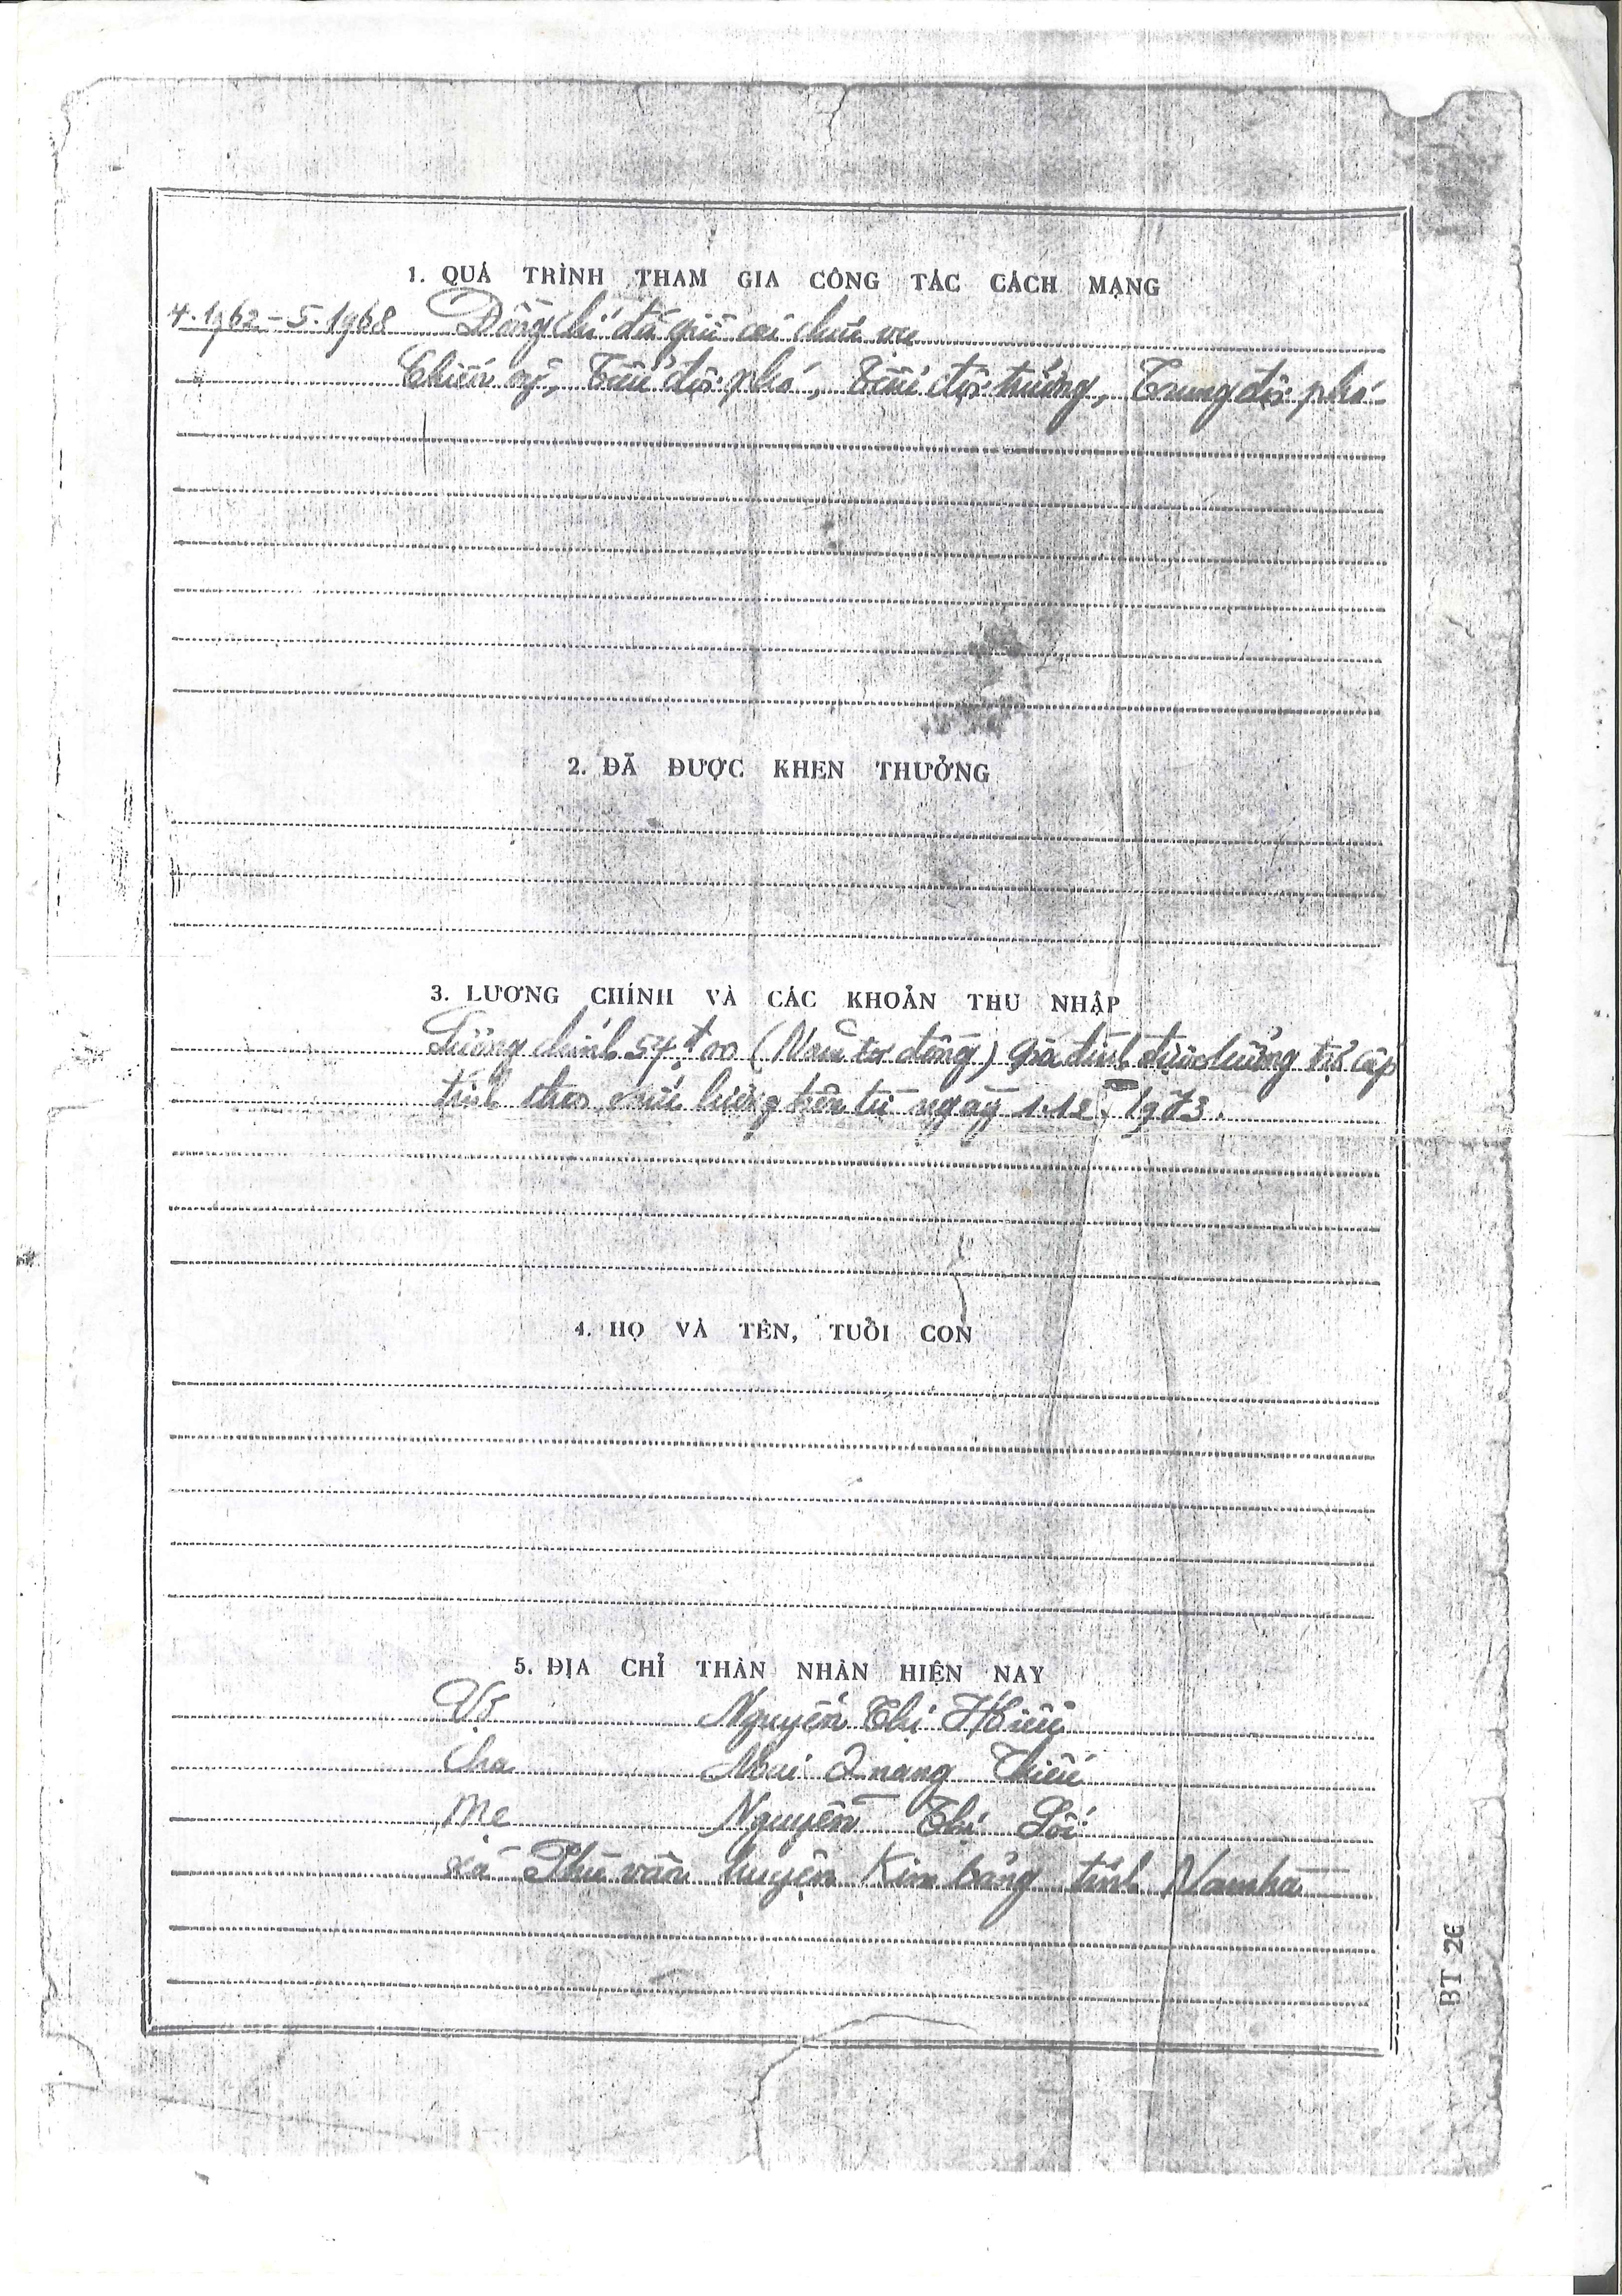 1. QUÁ TRÌNH THAM GIA CÔNG TÁC CÁCH MẠNG
4.1962-5.1968 Đồng chí đã giữ cái chức vụ
Chiến sỹ, Tiểu đội phó, Tiểu đội trưởng, Trung đội phó
2. ĐÃ ĐƯỢC KHEN THƯỞNG
3. LƯƠNG CHÍNH VÀ CÁC KHOẢN THU NHẬP
Lương chính 54đ00 (Năm tư đồng) gia đình được hưởng trợ cấp
tính theo mức lương trên từ ngày 1.12.1973.
4. HỌ VÀ TÊN, TUỔI CON
5. ĐỊA CHỈ THÂN NHÂN HIỆN NAY
Vợ Nguyễn Thị
Cha Mai Quang
Mẹ Nguyễn Thị
xã Phù vân huyện Kim bảng tỉnh Namhà
BT 26